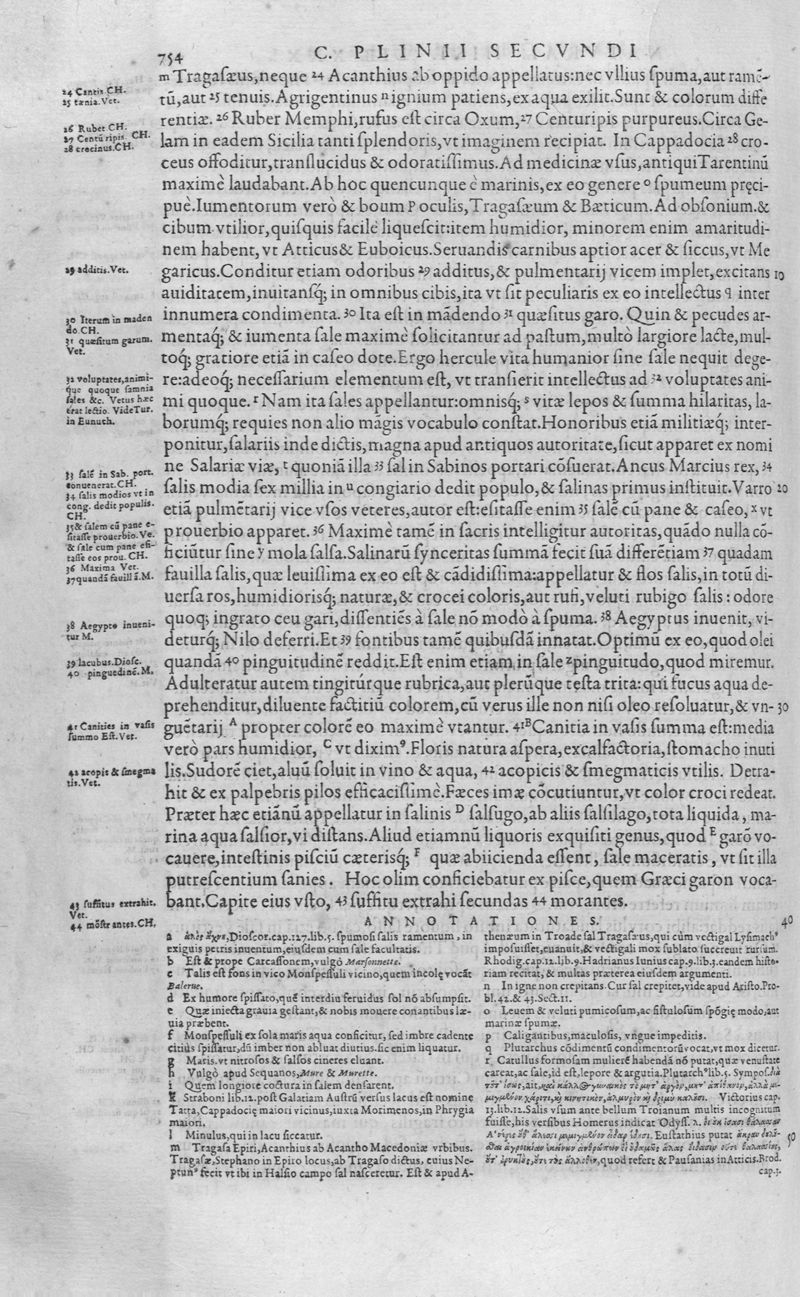 754
C. PLINII SECVNDI
m Tragaſæus, neque 24 Acanthius ab oppido appellatus: nec vllius ſpuma, aut ramē-
tū, aut 25 tenuis. Agrigentinus n ignium patiens, ex aqua exilit. Sunt & colorum diffe
rentiæ. 26 Ruber Memphi, rufus eſt circa Oxum, 27 Centuripis purpureus. Circa Ge-
lam in eadem Sicilia tanti ſplendoris, vt imaginem recipiat. In Cappadocia 28 cro-
ceus effoditur, tranſlucidus & odoratiſſimus. Ad medicinæ vſus, antiqui Tarentinū
maximè laudabant. Ab hoc quencunque è marinis, ex eo genere o ſpumeum pręci-
puè. Iumentorum verò & boum p oculis, Tragaſæum & Bæticum. Ad obſonium. &
cibum vtilior, quiſquis facilè liqueſcit: item humidior, minorem enim amaritudi-
nem habent, vt Atticus & Euboicus. Seruandis carnibus aptior acer & ſiccus, vt Me
garicus. Conditur etiam odoribus 29 additus, & pulmentarij vicem implet, excitans 10
auiditatem, inuitanſq; in omnibus cibis, ita vt ſit peculiaris ex eo intellectus q inter
innumera condimenta. 30 Ita eſt in mādendo 31 quæſitus garo. Quin & pecudes ar-
mentaq; & iumenta ſale maximè ſolicitantur ad paſtum, multò largiore lacte, mul-
toq; gratiore etiā in caſeo dote. Ergo hercule vita humanior ſine ſale nequit dege-
re: adeoq; neceſſarium elementum eſt, vt tranſierit intellectus ad 32 voluptates ani-
mi quoque. r Nam ita ſales appellantur: omniſq; s vitæ lepos & ſumma hilaritas, la-
borumq; requies non alio magis vocabulo conſtat. Honoribus etiā militiæq; inter-
ponitur, ſalariis inde dictis, magna apud antiquos autoritate, ſicut apparet ex nomi
ne Salariæ viæ, t quoniā illa 33 ſal in Sabinos portari cōſuerat. Ancus Marcius rex, 34
ſalis modia ſex millia in u congiario dedit populo, & ſalinas primus inſtituit. Varro 20
etiā pulmētarij vice vſos veteres, autor eſt: eſitaſſe enim 35 ſalē cū pane & caſeo, x vt
prouerbio apparet. 36 Maximè tamē in ſacris intelligitur autoritas, quādo nulla cō-
ficiūtur ſine y mola ſalſa. Salinarū ſynceritas ſummā fecit ſuā differētiam 37 quadam
fauilla ſalis, quæ leuiſſima ex eo eſt & cādidiſſima: appellatur & flos ſalis, in totū di-
uerſa ros, humidioriſq; naturæ, & crocei coloris, aut rufi, veluti rubigo ſalis: odore
quoq; ingrato ceu gari, diſſentiēs à ſale nō modò à ſpuma. 38 Aegyptus inuenit, vi-
deturq; Nilo deferri. Et 39 fontibus tamē quibuſdā innatat. Optimū ex eo, quod olei
quandā 40 pinguitudinē reddit. Eſt enim etiam in ſale z pinguitudo, quod miremur.
Adulteratur autem tingitúrque rubrica, aut plerūque teſta trita: qui fucus aqua de-
prehenditur, diluente factitiū colorem, cū verus ille non niſi oleo reſoluatur, & vn- 30
guētarij A propter colorē eo maximè vtantur. 41 B Canitia in vaſis ſumma eſt: media
verò pars humidior, C vt diximꝰ. Floris natura aſpera, excalfactoria, ſtomacho inuti
lis. Sudorē ciet, aluū ſoluit in vino & aqua, 42 acopicis & ſmegmaticis vtilis. Detra-
hit & ex palpebris pilos efficaciſſimè. Fæces imæ cōcutiuntur, vt color croci redeat.
Præter hæc etiānū appellatur in ſalinis D ſalſugo, ab aliis ſalſilago, tota liquida, ma-
rina aqua ſalſior, vi diſtans. Aliud etiamnū liquoris exquiſiti genus, quod E garō vo-
cauere, inteſtinis piſciū cæteriſq; F quæ abiicienda eſſent, ſale maceratis, vt ſit illa
putreſcentium ſanies. Hoc olim conficiebatur ex piſce, quem Græci garon voca-
bant. Capite eius vſto, 43 ſuffitu extrahi ſecundas 44 morantes.
24 Cantis CH.
25 tænia. Vet.
26 Rubet CH.
27 Centū ripis CH.
28 crocinus. CH.
29 additis. Vet.
30 Iterum in maden
do CH.
31 quæſitum garum.
Vet.
32 voluptates, animi-
que quoque ſomnia
ſales &c. Vetus hæc
erat lectio. Vide Tur.
in Eunuch.
33 ſalē in Sab. port.
conuenerat. CH.
34 ſalis modios vt in
cong. dedit populis.
CH.
35 & ſalem cū pane e-
ſitaſſe prouerbio. Ve.
& ſale cum pane eſi-
taſſe eos prou. CH.
36 Maxima Vet.
37 quandā fauillā. M.
38 Aegypto inueni-
tur M.
39 lacubus. Dioſc.
40 pinguedinē. M.
41 Canities in vaſis
ſummo Eſt. Vet.
42 acopis & ſmegma
tis. Vet.
43 ſuffitus extrahit.
Vet.
44 mōſtrantes. CH.
ANNOTATIONES. 40
a Dioſcor. cap. 127. lib. 5. ſpumoſi ſalis ramentum, in
exiguis petris inuentum, eiuſdem cum ſale facultatis.
b Eſt & prope Carcaſſonem, vulgò Marſonnette.
c Talis eſt fons in vico Monſpeſſuli vicino, quem incolę vocāt
Balerue.
d Ex humore ſpiſſato, quē interdiu feruidus ſol nō abſumpſit.
e Quæ iniecta grauia geſtant, & nobis mouere conantibus læ-
uia præbent.
f Monſpeſſuli ex ſola maris aqua conficitur, ſed imbre cadente
citius ſpiſſatur, dū imber non abluat diutius. ſic enim liquatur.
g Matis. vt nitroſos & ſalſos cineres eluant.
h Vulgò apud Sequanos, Mure & Murette.
i Quem longiore coctura in ſalem denſarent.
k Straboni lib. 12. poſt Galatiam Auſtrū verſus lacus eſt nomine
Tatta, Cappadocię maiori vicinus, iuxta Morimenos, in Phrygia
maiori.
l Minulus, qui in lacu ſiccatur.
m Tragaſa Epiri, Acanthius ab Acantho Macedoniæ vrbibus.
Tragaſæ, Stephano in Epiro locus, ab Tragaſo dictus, cuius Ne-
ptunꝰ fecit vt ibi in Halſio campo ſal naſceretur. Eſt & apud A-
thenæum in Troade ſal Tragaſæus, qui cùm vectigal Lyſimachꝰ
impoſuiſſet, euanuit, & vectigali mox ſublato ſuccreuit rurſum.
Rhodig. cap. 12. lib. 9. Hadrianus Iunius cap. 9. lib. 3. eandem hiſto-
riam recitat, & multas præterea eiuſdem argumenti.
n In igne non crepitans. Cur ſal crepitet, vide apud Ariſto. Pro-
bl. 42. & 43. Sect. 11.
o Leuem & veluti pumicoſum, ac fiſtuloſum ſpōgię modo, aut
marinæ ſpumæ.
p Caligantibus, maculoſis, vngue impeditis.
q Plutarchus cōdimentū condimentorū vocat, vt mox dicetur.
r Catullus formoſam mulierē habendā nō putat, quæ venuſtate
careat, ac ſale, id eſt, lepore & argutia. Plutarchꝰ lib. 5. Sympoſ.
Victorius cap.
13. lib. 12. Salis vſum ante bellum Troianum multis incognitum
fuiſſe, his verſibus Homerus indicat Odyſſ. λ.
Euſtathius putat 50
quod refert & Pauſanias in Atticis. Rod.
cap. 3.